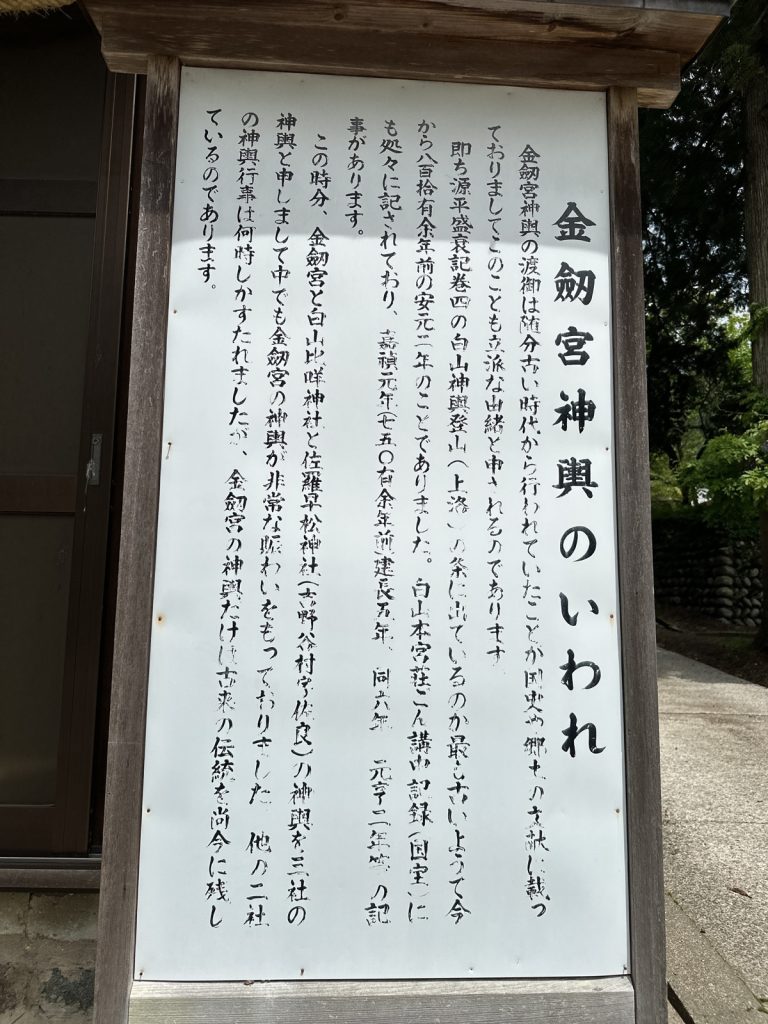 金劔宮神輿のいわれ
金劔宮神輿の渡御は随分古い時代から行われていたことが国史や郷土の文献に載つ
ておりましてこのことも立派な由緒と申されるのであります
即ち源平盛衰記巻四の白山神輿登山(上洛)の条に出ているのが最も古いようで今
から八百拾有余年前の安元二年のことでありました。白山本宮荘ごん講中記録(国宝)に
も処々に記されており、嘉禎元年(七五〇有余年前)建長五年、同六年 元亨二年等の記
事があります。
この時分、金劔宮と白山比咩神社と佐羅早松神社(吉野谷村字佐良)の神輿を三社の
神輿と申しまして中でも金劔宮の神輿が非常な賑わいをもつておりました 他の二社
の神輿行事は何時しかすたれましたが、金劔宮の神輿だけは古来の伝統を尚今に残し
ているのであります。